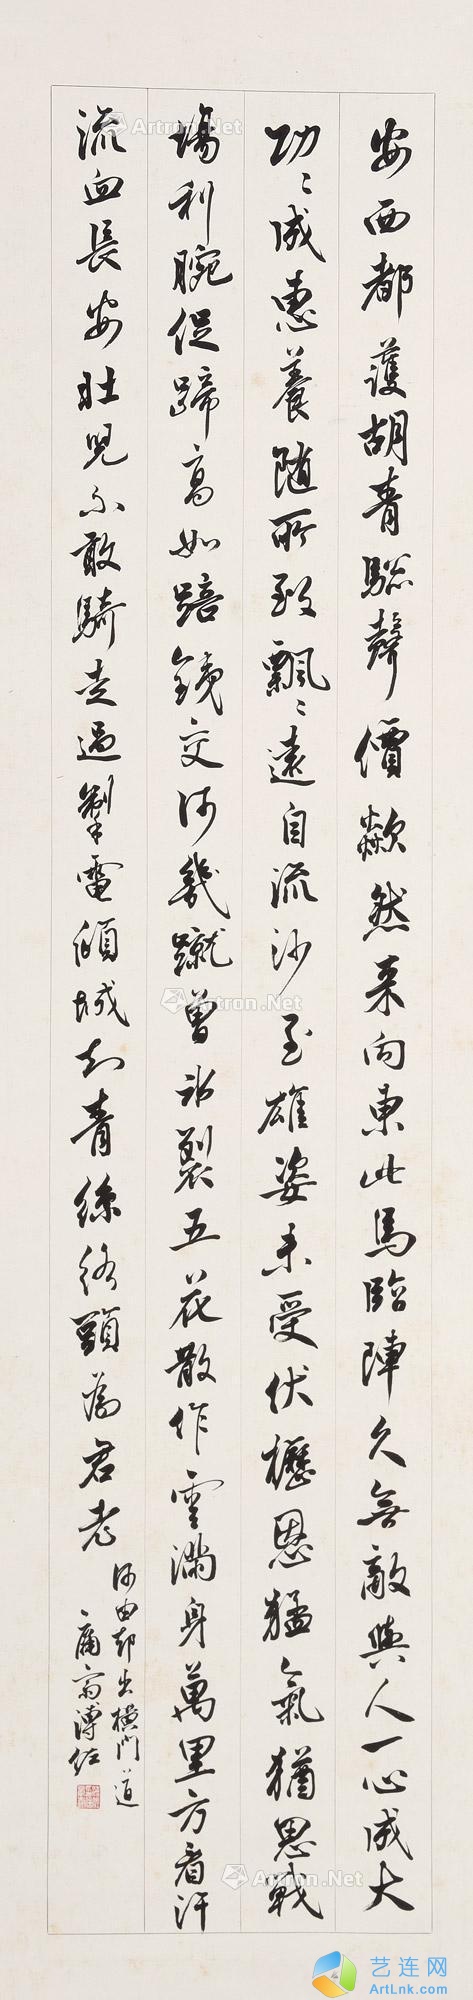 安西都護胡青驄聲價歘然来向東此馬臨陣久無敵與人一心成大
功々成惠養随所致飄々遠自流沙至雄姿未受伏櫪恩猛氣猶思戰
場利腕促蹄高如踣鐵交河幾蹴曾冰裂五花散作雲滿身萬里方看汗
流血長安壯兒不敢騎走過掣電傾城知青絲絡頭為君老
何由却出橫門道
庸齋溥任
Artron.Net
Artron.Net
Artron.Net
Artron.Net
Artron.Net
艺连网
ArtLnk.com